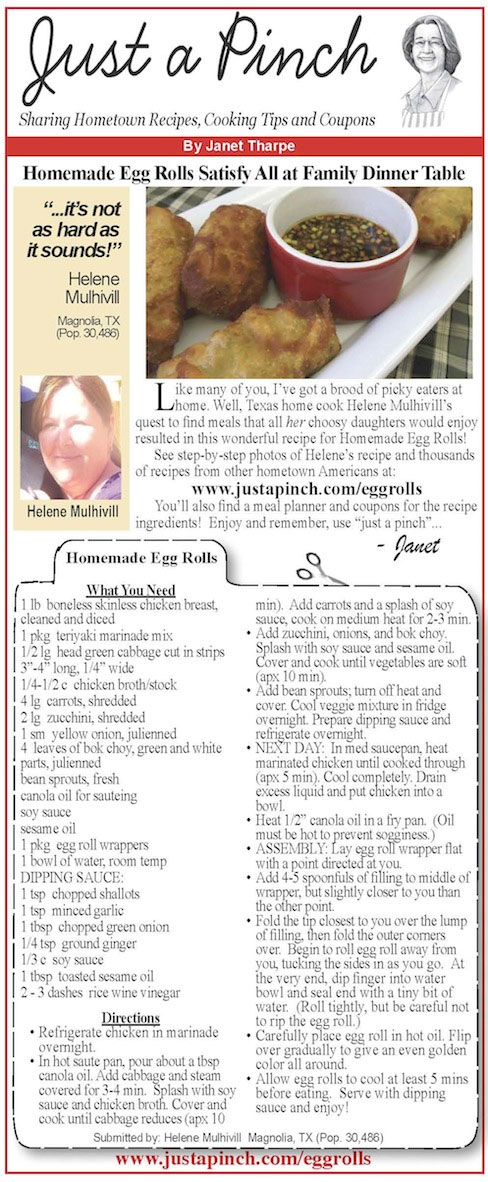 Just a Pinch
Sharing Hometown Recipes, Cooking Tips and Coupons
By Janet Tharpe
Homemade Egg Rolls Satisfy All at Family Dinner Table
“...it’s not
as hard as
it sounds!”
Helene
Mulhivill
Magnolia, TX
(Pop. 30,486)
Helene Mulhivill
Like many of you, I’ve got a brood of picky eaters at
home. Well, Texas home cook Helene Mulhivill’s
quest to find meals that all her choosy daughters would enjoy
resulted in this wonderful recipe for Homemade Egg Rolls!
See step-by-step photos of Helene’s recipe and thousands
of recipes from other hometown Americans at:
www.justapinch.com/eggrolls
You’ll also find a meal planner and coupons for the recipe
ingredients! Enjoy and remember, use “just a pinch”...
- Janet
Homemade Egg Rolls
What You Need
1 lb boneless skinless chicken breast,
cleaned and diced
1 pkg teriyaki marinade mix
1/2 lg head green cabbage cut in strips
3”-4” long, 1/4” wide
1/4-1/2 c chicken broth/stock
4 lg carrots, shredded
2 lg zucchini, shredded
1 sm yellow onion, julienned
4 leaves of bok choy, green and white
parts, julienned
bean sprouts, fresh
canola oil for sauteing
soy sauce
sesame oil
1 pkg egg roll wrappers
1 bowl of water, room temp
DIPPING SAUCE:
1 tsp chopped shallots
1 tsp minced garlic
1 tbsp chopped green onion
1/4 tsp ground ginger
1/3 c soy sauce
1 tbsp toasted sesame oil
2 - 3 dashes rice wine vinegar
Directions
• Refrigerate chicken in marinade
overnight.
• In hot saute pan, pour about a tbsp
canola oil. Add cabbage and steam
covered for 3-4 min. Splash with soy
sauce and chicken broth. Cover and
cook until cabbage reduces (apx 10
min). Add carrots and a splash of soy
sauce, cook on medium heat for 2-3 min.
• Add zucchini, onions, and bok choy.
Splash with soy sauce and sesame oil.
Cover and cook until vegetables are soft
(apx 10 min).
• Add bean sprouts; turn off heat and
cover. Cool veggie mixture in fridge
overnight. Prepare dipping sauce and
refrigerate overnight.
• NEXT DAY: In med saucepan, heat
marinated chicken until cooked through
(apx 5 min). Cool completely. Drain
excess liquid and put chicken into a
bowl.
• Heat 1/2” canola oil in a fry pan. (Oil
must be hot to prevent sogginess.)
• ASSEMBLY: Lay egg roll wrapper flat
with a point directed at you.
• Add 4-5 spoonfuls of filling to middle of
wrapper, but slightly closer to you than
the other point.
• Fold the tip closest to you over the lump
of filling, then fold the outer corners
over. Begin to roll egg roll away from
you, tucking the sides in as you go. At
the very end, dip finger into water
bowl and seal end with a tiny bit of
water. (Roll tightly, but be careful not
to rip the egg roll.)
• Carefully place egg roll in hot oil. Flip
over gradually to give an even golden
color all around.
• Allow egg rolls to cool at least 5 mins
before eating. Serve with dipping
sauce and enjoy!
Submitted by: Helene Mulhivill Magnolia, TX (Pop. 30,486)
www.justapinch.com/eggrolls